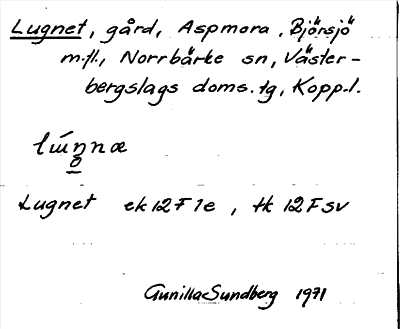 Lugnet, gård, Aspmora, Björsjö
m.fl., Norrbärke sn, Väster-
bergslags doms. tg, Kopp.l.
Lugnet ek 12F1e, tk 12Fsv
Gunilla Sundberg 1971